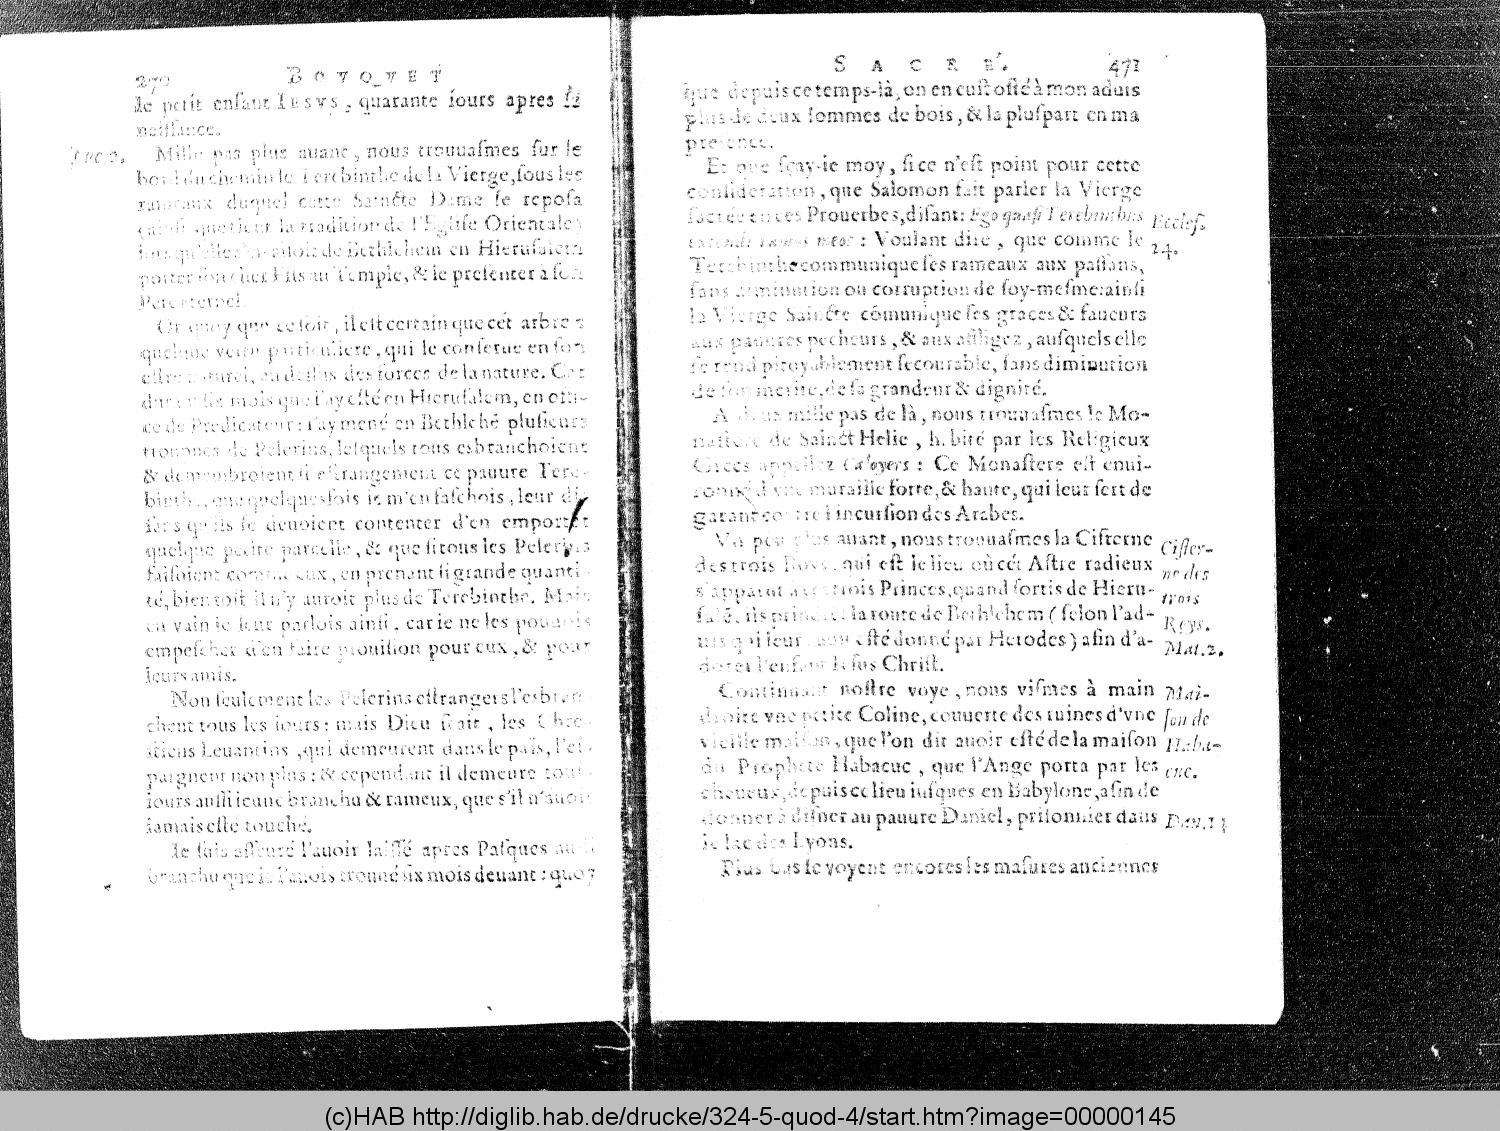 270 BOVQVET
le petit enfant IESVS, quarante iours apres sa
naissance.
Luc 2.
Mille pas plus auant, nous trouuasmes sur le
bord du chemin le Terebinthe de la Vierge, sous les
rameaux duquel cette Saincte Dame se reposa
que tient la tradition de l'Eglise Orientale)
de Bethlehem en Hierusalem
porter son cher Fils au Temple, & le presenter à son
Pere eternel.
Or quoy que ce soit, il est certain que cét arbre a
quelque vertu particuliere, qui le conserue en son
estre naturel, au dessus des forces de la nature. Car
durant six mois que i'ay esté en Hierusalem, en offi-
ce de Predicateur: i'ay mené en Bethlehé plusieurs
trouppes de Pelerins, lesquels tous esbranchoient
& demembroient si estrangement ce pauure Tere-
binthe, que quelquesfois ie m'en faschois, leur di-
sans qu'ils se deuoient contenter d'en emporter
quelque petite parcelle, & que si tous les Pelerins
faisoient comme eux, en prenant si grande quanti-
té, bien tost il n'y auroit plus de Terebinthe. Mais
en vain ie leur parlois ainsi, car ie ne les pouuois
empescher d'en faire prouision pour eux, & pour
leurs amis.
Non seulement les Pelerins estrangers l'esbran-
chent tous les iours: mais Dieu sçait, les Chre-
stiens Leuantins, qui demeurent dans le païs, l'es-
pargnent non plus: & cependant il demeure tous-
iours aussi ieune branchu & rameux, que s'il n'auoit
iamais esté touché.
Ie suis asseuré l'auoir laissé apres Pasques aussi
branchu que ie l'auois trouué six mois deuant: quoy
SACRE'. 471
que depuis ce temps-là, on en eust osté à mon aduis
plus de deux sommes de bois, & la pluspart en ma
presence.
Et que sçay-ie moy, si ce n'est point pour cette
consideration, que Salomon fait parler la Vierge
sacrée en ces Prouerbes, disant: Ego quasi Terebinthus
Eccles.
24.
extendi ramos meos: Voulant dire, que comme le
Terebinthe communique ses rameaux aux passans,
sans diminution ou corruption de soy-mesme: ainsi
la Vierge Saincte cómunique ses graces & faueurs
aux pauures pecheurs, & aux affligez, ausquels elle
se rend pitoyablement secourable, sans diminution
de son merite, de sa grandeur & dignité.
A deux mille pas de là, nous trouuasmes le Mo-
nastere de Sainct Helie, habité par les Religieux
Grecs appellez Caloyers: Ce Monastere est enui-
ronné d'vne muraille forte, & haute, qui leur sert de
garant contre l'incursion des Arabes.
Vn peu plus auant, nous trouuasmes la Cisterne
des trois Roys, qui est le lieu où cét Astre radieux
s'apparut à ces trois Princes, quand sortis de Hieru-
salé, ils prindrent la route de Bethlehem (selon l'ad-
uis qui leur auoit esté donné par Herodes) afin d'a-
dorer l'enfant Iesus Christ.
Cister-
ne des
trois
Reys.
Mat. 2.
Continuant nostre voye, nous vismes à main
droite vne petite Coline, couuerte des ruines d'vne
vieille maison, que l'on dit auoir esté de la maison
du Prophete Habacuc, que l'Ange porta par les
cheueux, depuis ce lieu iusques en Babylone, afin de
donner à disner au pauure Daniel, prisonnier dans
le lac des Lyons.
Mai-
son de
Haba-
cuc.
Dan. 14
Plus bas se voyent encores les masures anciennes
(c)HAB http://diglib.hab.de/drucke/324-5-quod-4/start.htm?image=00000145